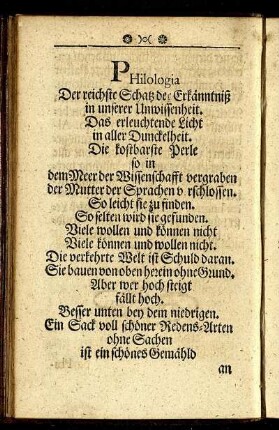 PHilologia
Der reichste Schatz der Erkänntniß
in unserer Unwissenheit.
Das erleuchtende Licht
in aller Dunckelheit.
Die kostbarste Perle
so in
dem Meer der Wissenschafft vergraben
der Mutter der Sprachen v. rschlossen.
So leicht sie zu finden.
So selten wird sie gefunden.
Viele wollen und können nicht
Viele können und wollen nicht.
Die verkehrte Welt ist Schuld daran.
Sie bauen von oben herein ohne Grund.
Aber wer hoch steigt
fällt hoch.
Besser unten bey dem niedrigen.
Ein Sack voll schöner Redens-Arten
ohne Sachen
ist ein schönes Gemähld
an